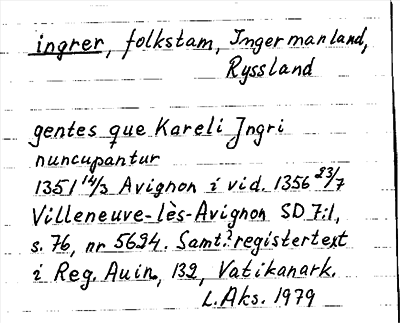 ingrer, folkstam, Ingermanland,
Ryssland
gentes que Kareli Jngri
nuncupantur
1351 14/3 Avignon i vid. 1356 23/7
Villeneuve-lès-Avignon SD 7:1,
s. 76, nr 5694. Samt? registertext
i Reg. Auin., 132, Vatikanark.
L. Aks. 1979